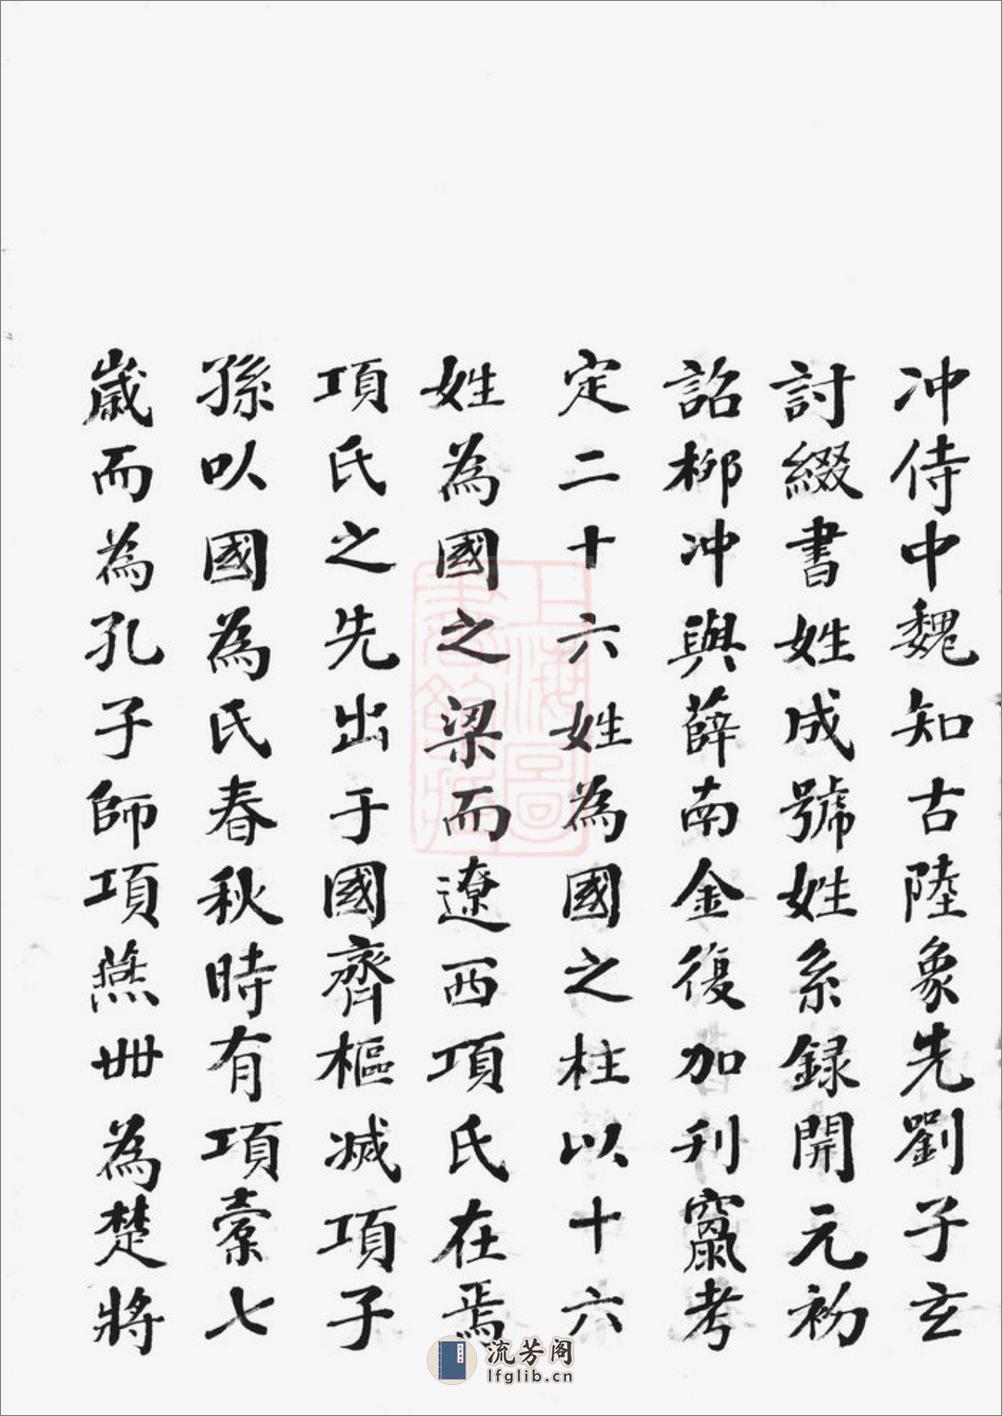 冲侍中魏知古陸象先劉子玄
討綴書姓成號姓系録開元初
詔柳冲與薛南金復加刋竄考
定二十六姓為國之柱以十六
姓為國之梁而遼西項氏在焉
項氏之先出于國齊樞滅項子
孫以國為氏春秋時有項橐七
歲而為孔子師項燕丗為楚將
上海圖書館藏
流芳阁
lfglib.cn